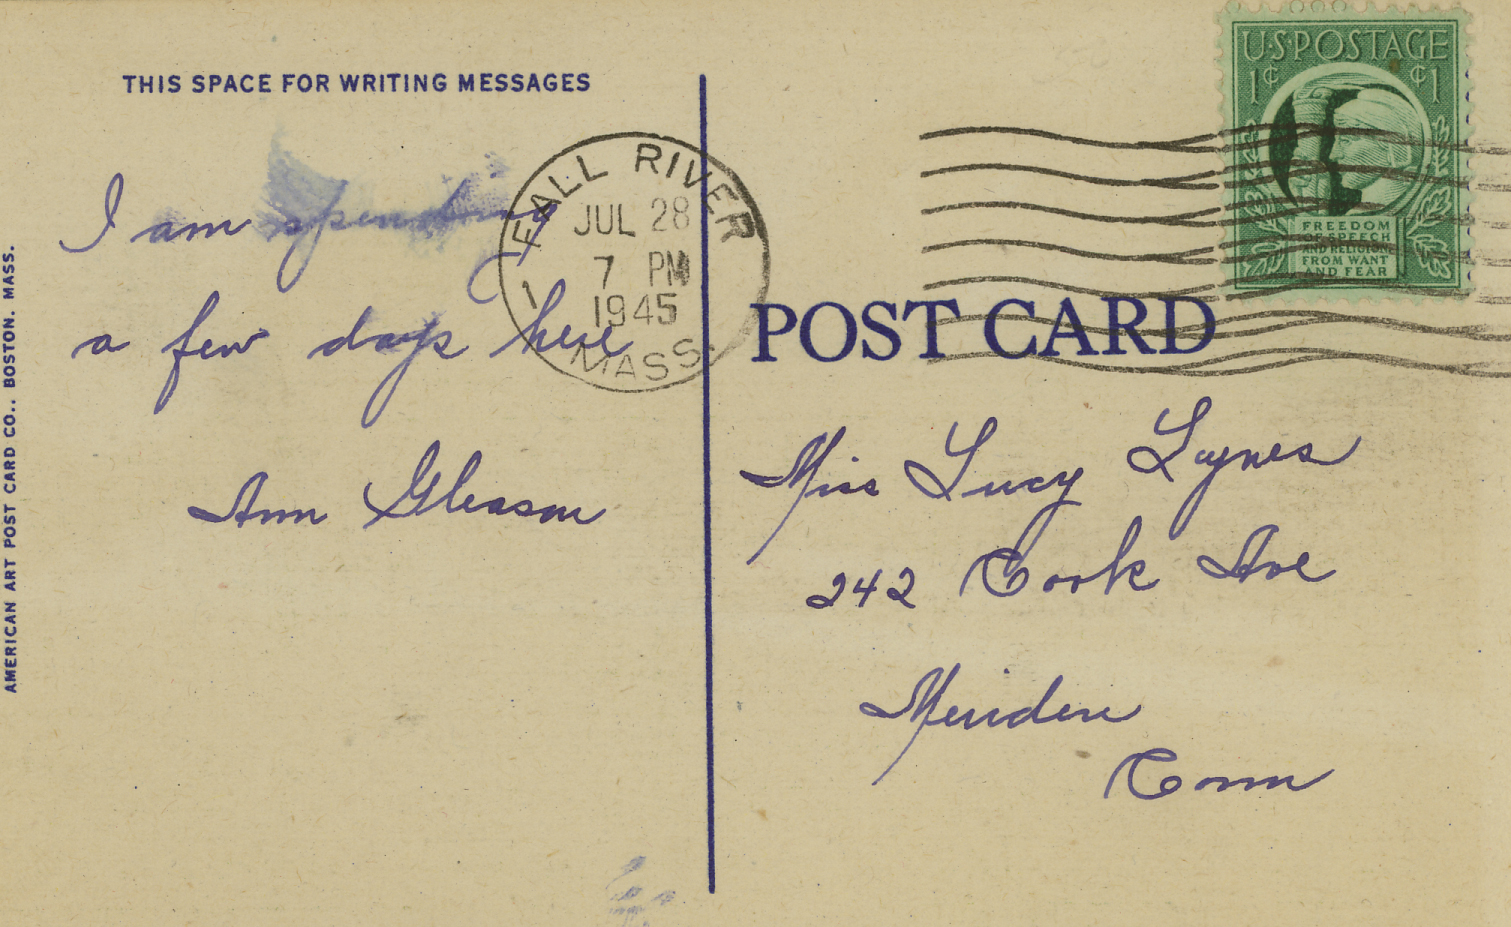 THIS SPACE FOR WRITING MESSAGES
I am spending
a few days here
Ann Gleason
AMERICAN ART POST CARD CO., BOSTON. MASS.
FALL RIVER
JUL 28
7 PM
1945
1
MASS.
U·S·POSTAGE
1¢ ¢1
FREEDOM
OF SPEECH
AND RELIGION
FROM WANT
AND FEAR
POST CARD
Miss Lucy Lynes
242 Cook Ave
Meriden
Conn